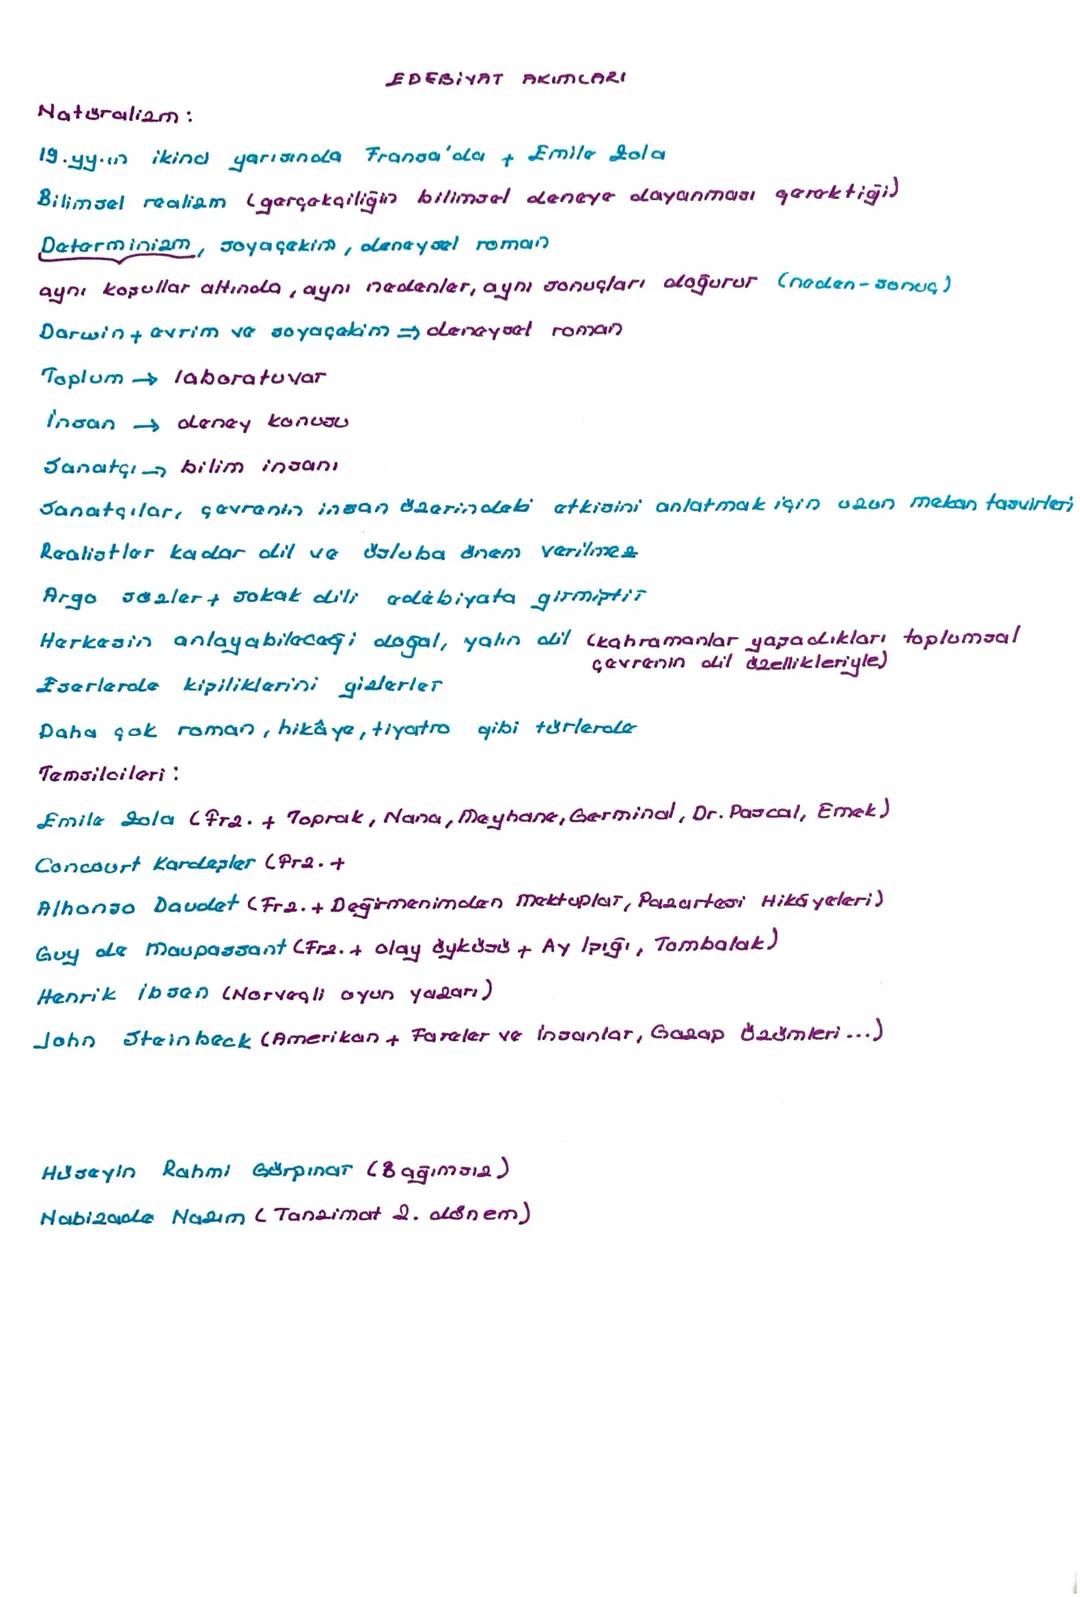 EDEBİYAT AKIMLARI
Natüralizm:
19.yy.ın ikinci yarısında Fransa'da + Emile Zola
Bilimsel realizm (gerçekçiliğin bilimsel deneye dayanması gerektiği)
Determinizm, soyaçekim, deneysel roman
aynı koşullar altında, aynı nedenler, aynı sonuçları doğurur (neden-sonuç)
Darwin + evrim ve soyaçekim ⇒ deneysel roman
Toplum → laboratuvar
İnsan → deney konusu
Sanatçı → bilim insanı
Sanatçılar, çevrenin insan üzerindeki etkisini anlatmak için uzun mekan tasvirleri
Realistler kadar dil ve üsluba önem verilmez
Argo sözler + sokak dili edebiyata girmiştir
Herkesin anlayabileceği doğal, yalın dil (kahramanlar yaşadıkları toplumsal
çevrenin dil özellikleriyle)
Eserlerde kişiliklerini gizlerler
Daha çok roman, hikâye, tiyatro gibi türlerde
Temsilcileri:
Emile Zola (Frz. + Toprak, Nana, Meyhane, Germinal, Dr. Pascal, Emek)
Concourt Kardeşler (Frz. +
Alhonso Daudet (Frz. + Değirmenimden Mektuplar, Pazartesi Hikâyeleri)
Guy de Maupassant (Frz. + olay öyküsü + Ay Işığı, Tombalak)
Henrik İbsen (Norveçli oyun yazarı)
John Steinbeck (Amerikan + Fareler ve İnsanlar, Gazap Üzümleri...)
Hüseyin Rahmi Gürpınar (Bağımsız)
Nabizade Nazım (Tanzimat 2. dönem)